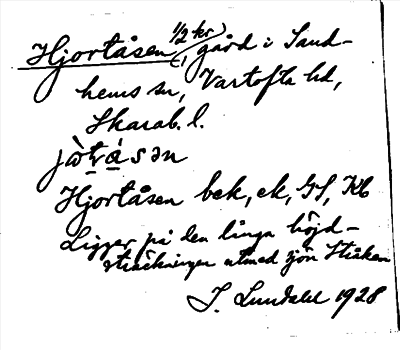 Hjortåsen (1/2 kr) gård i Sand-
hems sn, Vartofta hd,
Skarab. l.
Hjortåsen bek, ek, GS, Kb
Ligger på den långa höjd-
sträckningen utmed sjön Stråken
J. Lundahl 1928